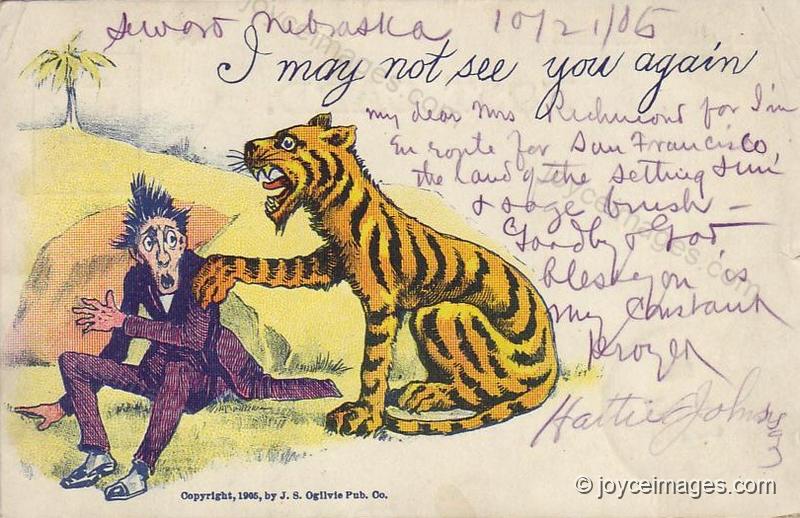 Seward Nebraska 10/21/05
I may not see you again
my dear Mrs Richmond for I'm
En route for San Francisco,
the land of the setting sun
& sage brush –
Goodby & God
bless you is
my Constant
Prayer
Hattie Johnson
Copyright, 1905, by J. S. Ogilvie Pub. Co.
© joyceimages.com